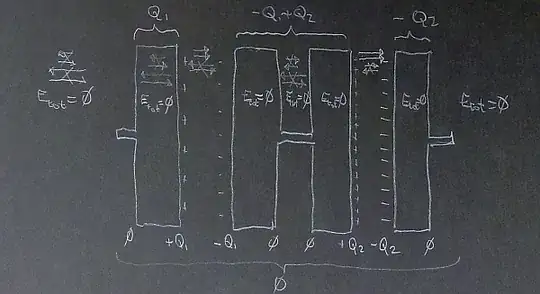 Q₁ -Q₁+Q₂ -Q₂
E_tot=∅ E_tot=∅ E_tot=∅ E_tot=∅ E_tot=∅ E_tot=∅ E_tot=∅
+ + + + + + + - - - - - - - - - + + + + + + + + + + + - - - - - - - - - - -
∅ +Q₁ -Q₁ ∅ ∅ +Q₂ -Q₂ ∅
∅